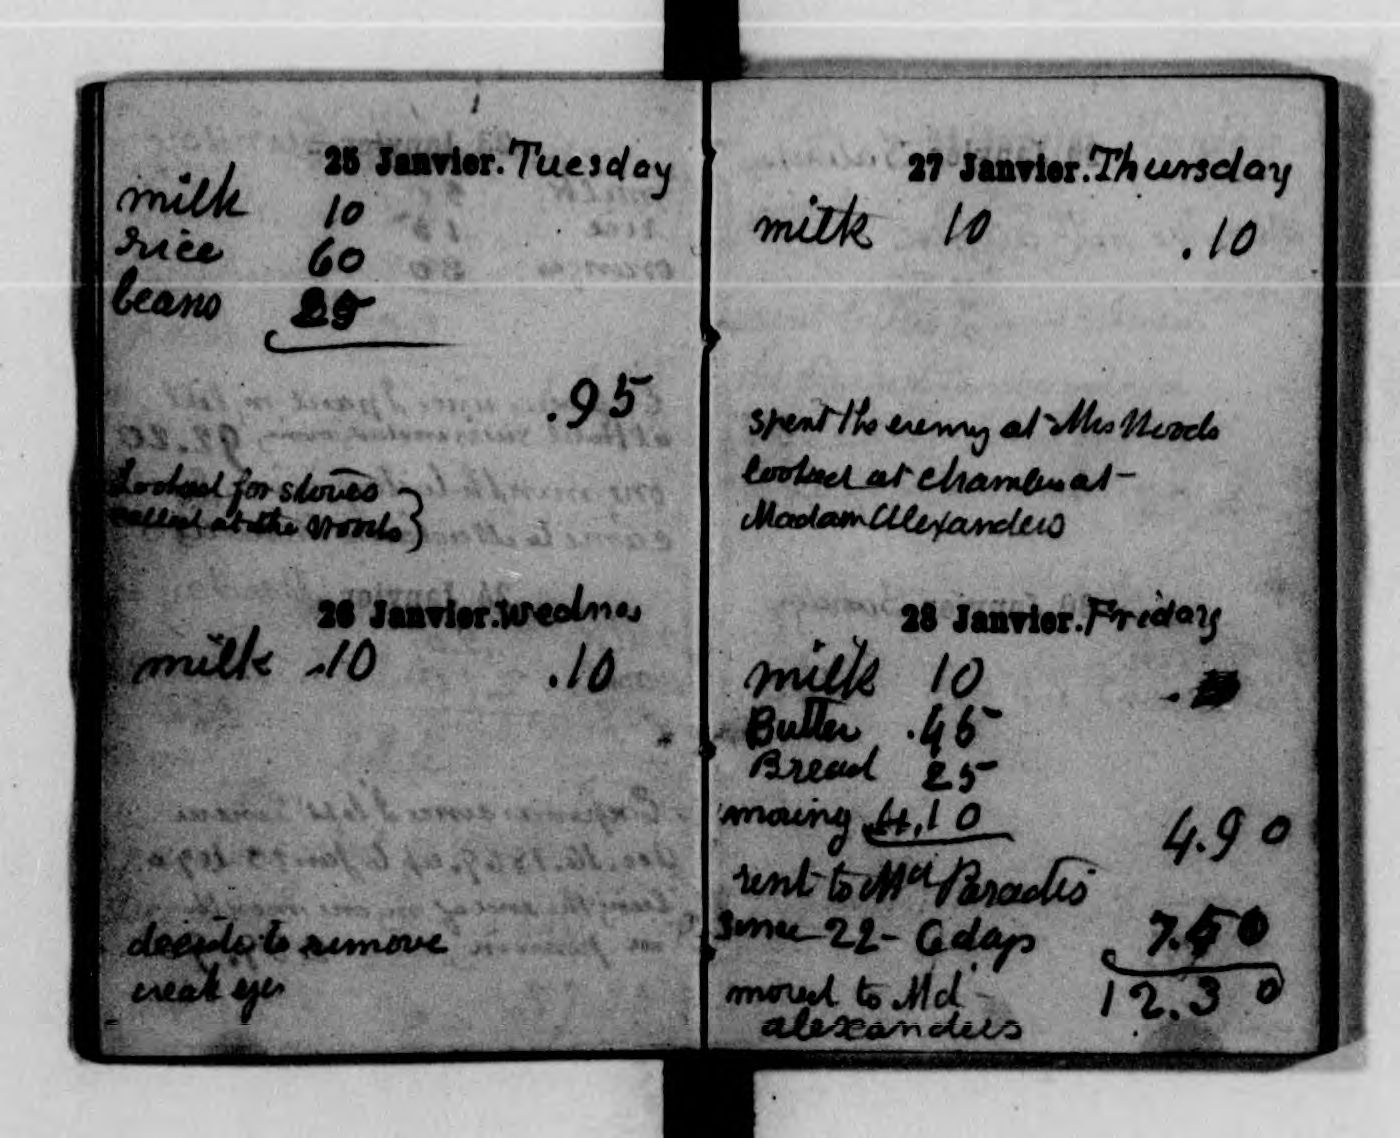 25 Janvier. Tuesday
milk 10
rice 60
beans 25
.95
Looked for stoves
called at the Woods
26 Janvier. Wednes
milk .10 .10
decide to remove
weak eyes
27 Janvier. Thursday
milk 10 .10
spent the evening at Mrs Woods
looked at chamber at
Madam Alexanders
28 Janvier. Friday
milk 10
Butter .45
Bread 25
moving 4.10 4.90
rent to Md Paradis
Since 22 - 6 days 7.40
12.30
moved to Md
alexanders